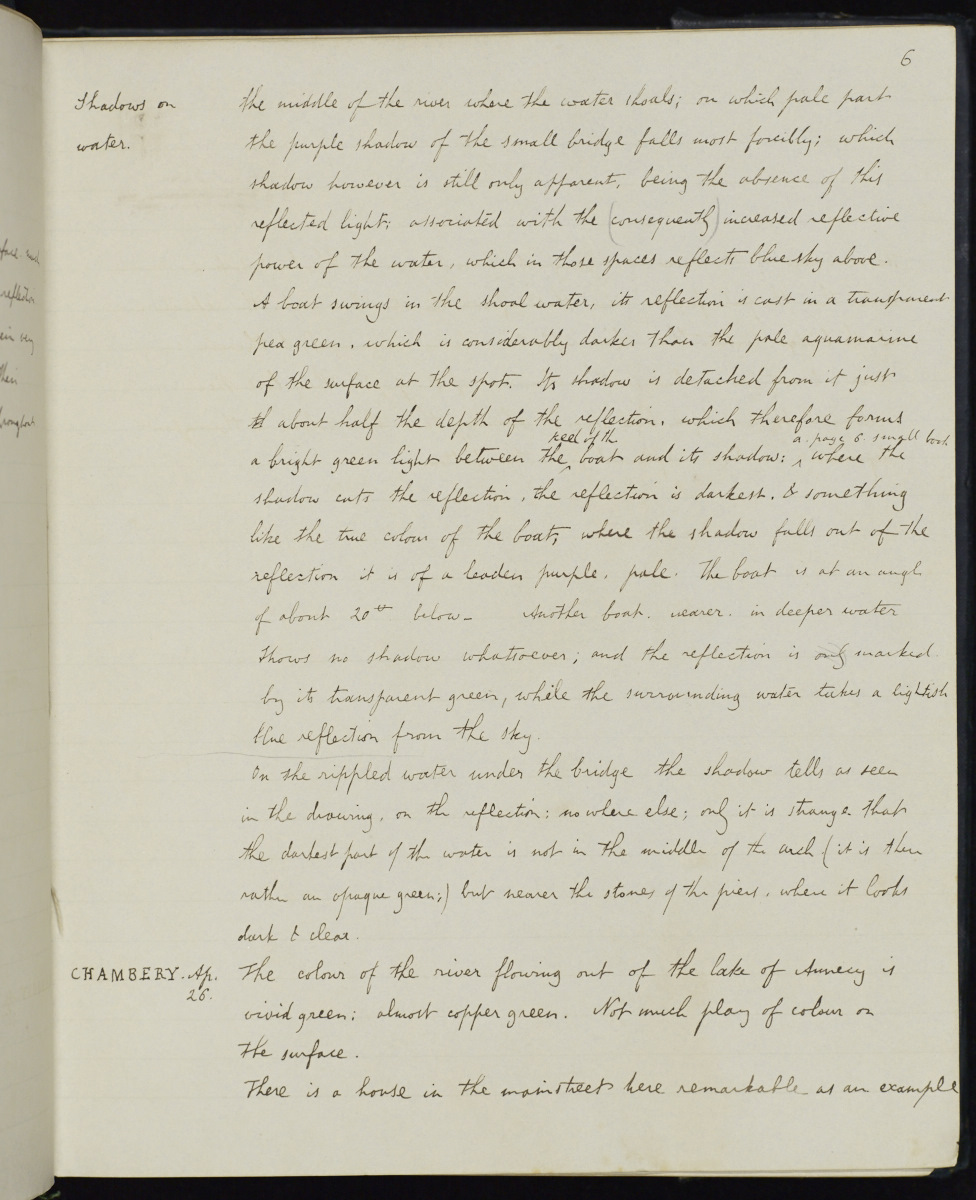 6
Shadows on
water.
the middle of the river where the water shoals; on which pale part
the purple shadow of the small bridge falls most forcibly; which
shadow however is still only apparent, being the absence of this
reflected light; associated with the (consequently) increased reflective
power of the water, which in those spaces reflects blue sky above.
A boat swings in the shoal water, its reflection is cast in a transparent
pea green, which is considerably darker than the pale aquamarine
of the surface at the spot. Its shadow is detached from it just
about half the depth of the reflection, which therefore forms
keel of th
a. page 6. small book
a bright green light between the boat and its shadow: where the
shadow cuts the reflection, the reflection is darkest, & something
like the true colour of the boat; where the shadow falls out of the
reflection it is of a leaden purple, pale. The boat is at an angle
of about 20th below- Another boat. nearer. in deeper water
shows no shadow whatsoever; and the reflection is only marked
by its transparent green, while the surrounding water takes a lightish
blue reflection from the sky.
On the rippled water under the bridge the shadow tells as seen
in the drawing, on the reflection; nowhere else; only it is strange that
the darkest part of the water is not in the middle of the arch (it is there
rather an opaque green;) but nearer the stones of the piers, where it looks
dark & clear.
CHAMBERY. Ap.
26.
The colour of the river flowing out of the lake of Annecy is
vivid green; almost copper green. Not much play of colour on
the surface.
There is a house in the mainstreet here remarkable as an example